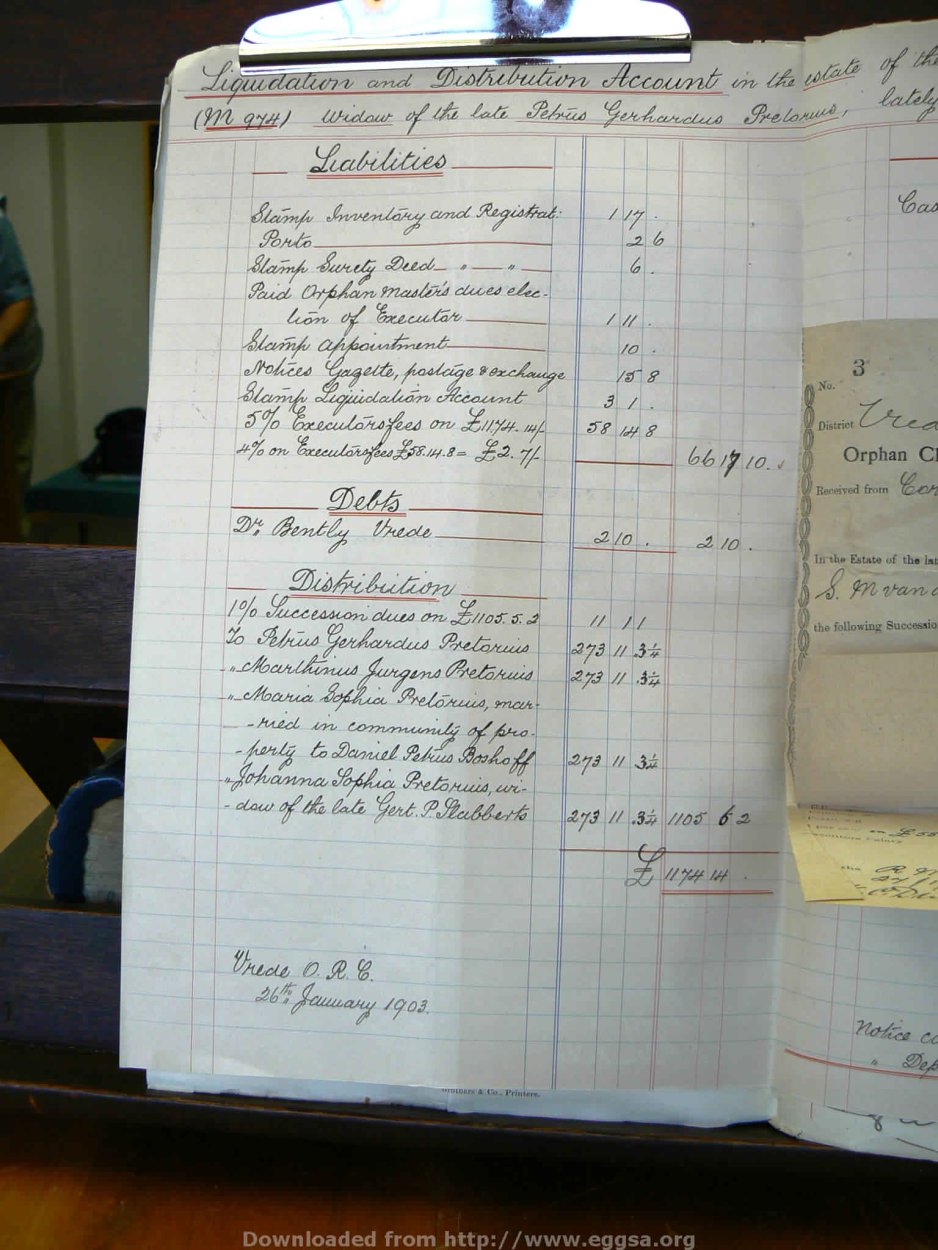 Liquidation and Distribution Account in the estate of the
(M 974) Widow of the late Petrus Gerhardus Pretorius, lately
Liabilities
Stamp Inventory and Registrat: 1 17 .
Porto 2 6
Stamp Surety Deed " — " 6 .
Paid Orphan Master's dues elec-
tion of Executor 1 11 .
Stamp appointment 10 .
Notices Gazette, postage & exchange 15 8
Stamp Liquidation Account 3 1 .
5% Executorsfees on £1174.14/- 58 14 8
4% on Executorsfees £58.14.8 = £2.7/- 66 17 10.
Debts
Dr. Bently Vrede 2 10 . 2 10 .
Distribution
1% Succession dues on £1105.5.2 11 1 1
To Petrus Gerhardus Pretorius 273 11 3¼
" Marthinus Jurgens Pretorius 273 11 3¼
" Maria Sophia Pretorius, mar-
-ried in community of pro-
-perty to Daniel Petrus Boshoff 273 11 3¼
" Johanna Sophia Pretorius, wi-
-dow of the late Gert. P. Slabberts 273 11 3¼ 1105 6 2
£ 1174 14 .
Vrede O. R. C.
26th January 1903.
Brothers & Co., Printers.
Cas
No. 3
District Vred
Orphan Ch
Received from Cor
In the Estate of the lat
S. M van d
the following Successio
Notice
" Dep
Downloaded from http://www.eggsa.org